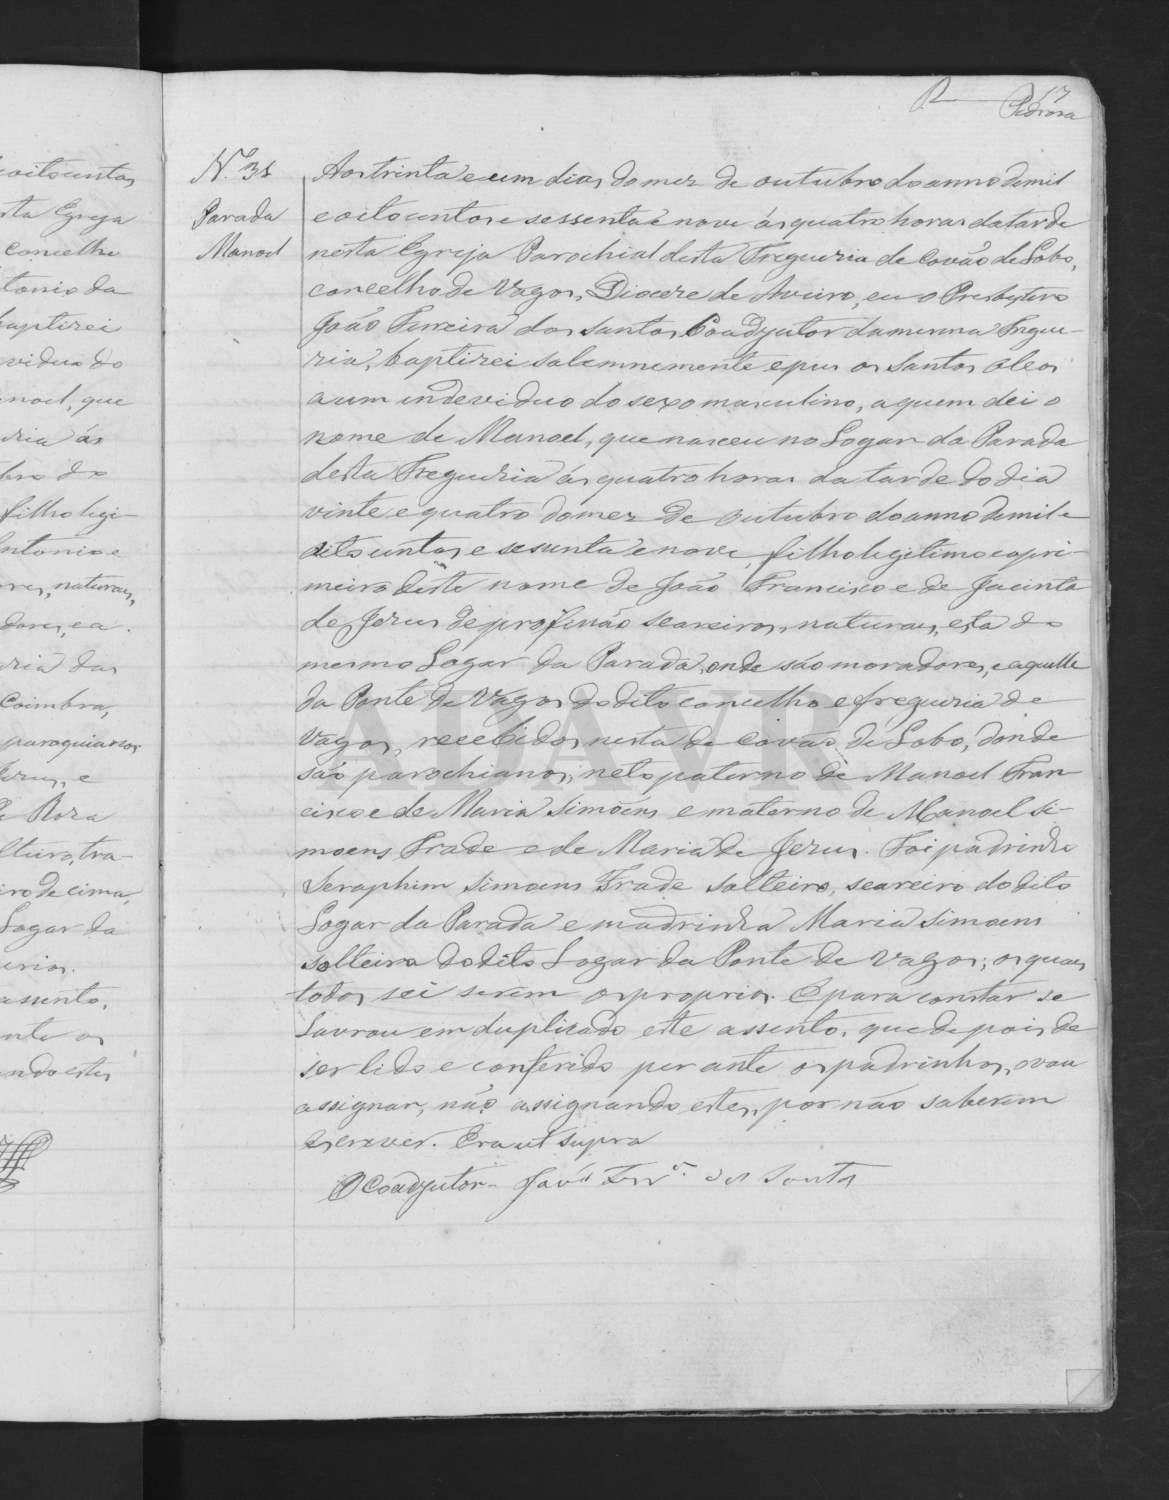 17
Pedrosa
coitocentos
sta Egreja
concelho
tonio da
baptizei
viduo do
noel, que
ria ás
bro do
filho legi-
ntonio e
res, naturaes,
dores, e a
ria das
Coimbra,
paroquianos
Jezus, e
e Roza
lteiro, tra-
iro de cima,
Logar da
assento,
nte os
ando estes
N.º 31
Parada
Manoel
Aos trinta e um dias do mez de outubro do anno de mil
e oitocentos e sessenta e nove ás quatro horas da tarde
nesta Egreja Parochial desta Freguezia de Covão de Lobo,
concelho de Vagos, Diocese de Aveiro, eu o Presbytero
João Ferreira dos Santos Coadjutor da mesma Fregue-
zia, baptizei solemnemente e pus os Santos oleos
a um indeviduo do sexo masculino, a quem dei o
nome de Manoel, que nasceu no Logar da Parada
desta Freguezia ás quatro horas da tarde do dia
vinte e quatro do mez de outubro do anno de mil e
oitocentos e sesenta e nove, filho legitimo e o pri-
meiro deste nome de João Francisco e de Jacinta
de Jezus de profissão seareiros, naturaes, esta do
mesmo Logar da Parada, onde são moradores, e aquelle
da Ponte de Vagos do dito concelho e freguezia de
Vagos, recebidos nesta de Covão de Lobo, donde
são parochianos; neto paterno de Manoel Fran
cisco e de Maria Simoens e materno de Manoel Si-
moens Frade e de Maria de Jezus. Foi padrinho
Seraphim Simoens Frade solteiro, seareiro do dito
Logar da Parada e madrinha Maria Simoens
solteira do dito Logar da Ponte de Vagos; os quaes
todos sei serem os proprios. E para constar se
lavrou em duplicado este assento, que depois de
ser lido e conferido perante os padrinhos, o vou
assignar, não assignando estes, por não saberem
escrever. Era ut supra
O Coadjutor - João Ferr.ª dos Santos
ADAVR